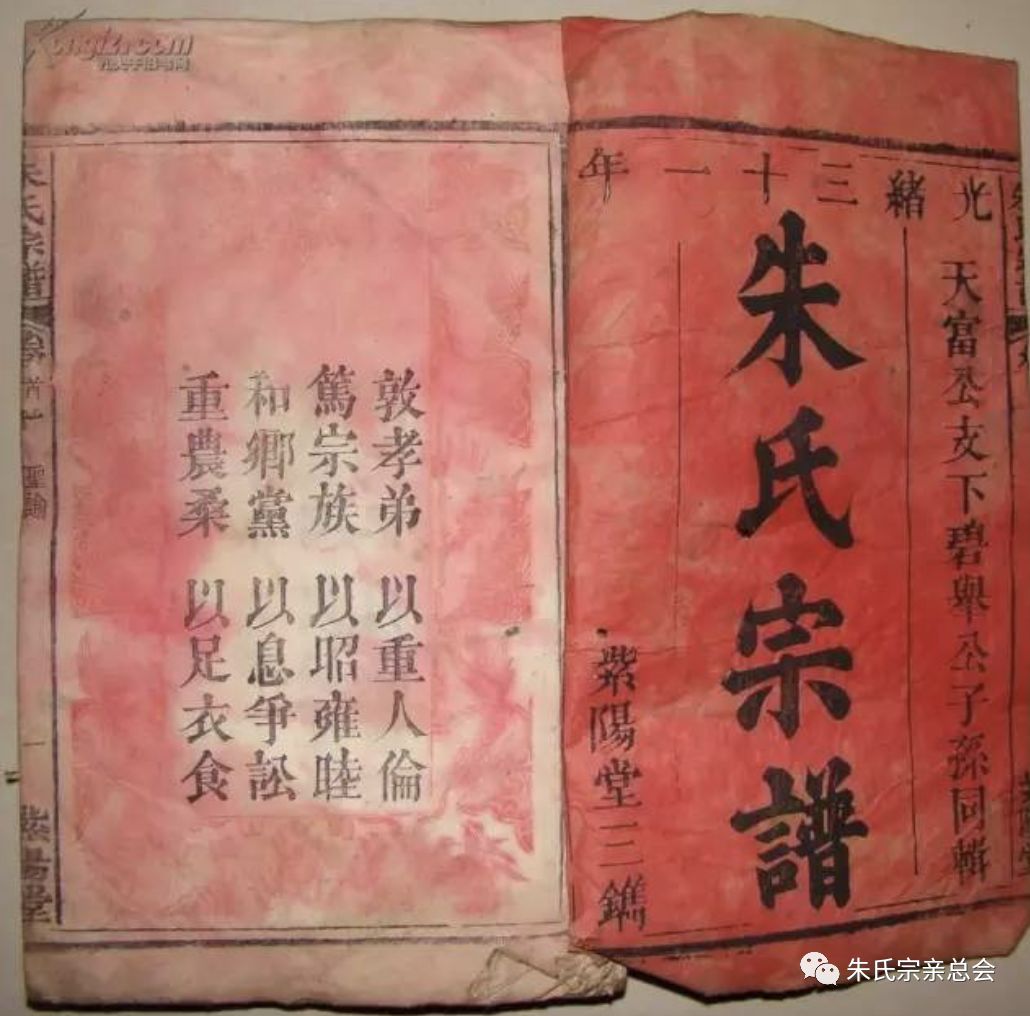 光緒三十一年
天富公支下碧舉公子孫同輯
朱氏宗譜
紫陽堂三鐫
敦孝弟以重人倫
篤宗族以昭雍睦
和鄉黨以息爭訟
重農桑以足衣食
朱氏宗譜
卷首
聖諭
一
紫陽堂
朱氏宗亲总会